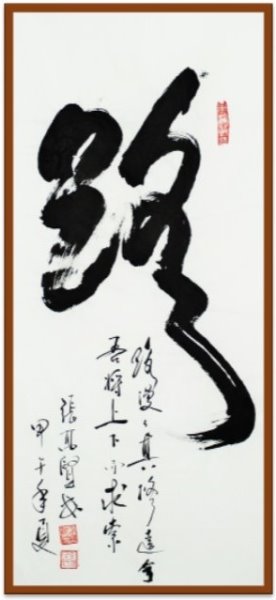 路
路漫々其修遠兮
吾將上下而求索
張高賢书
甲午年夏